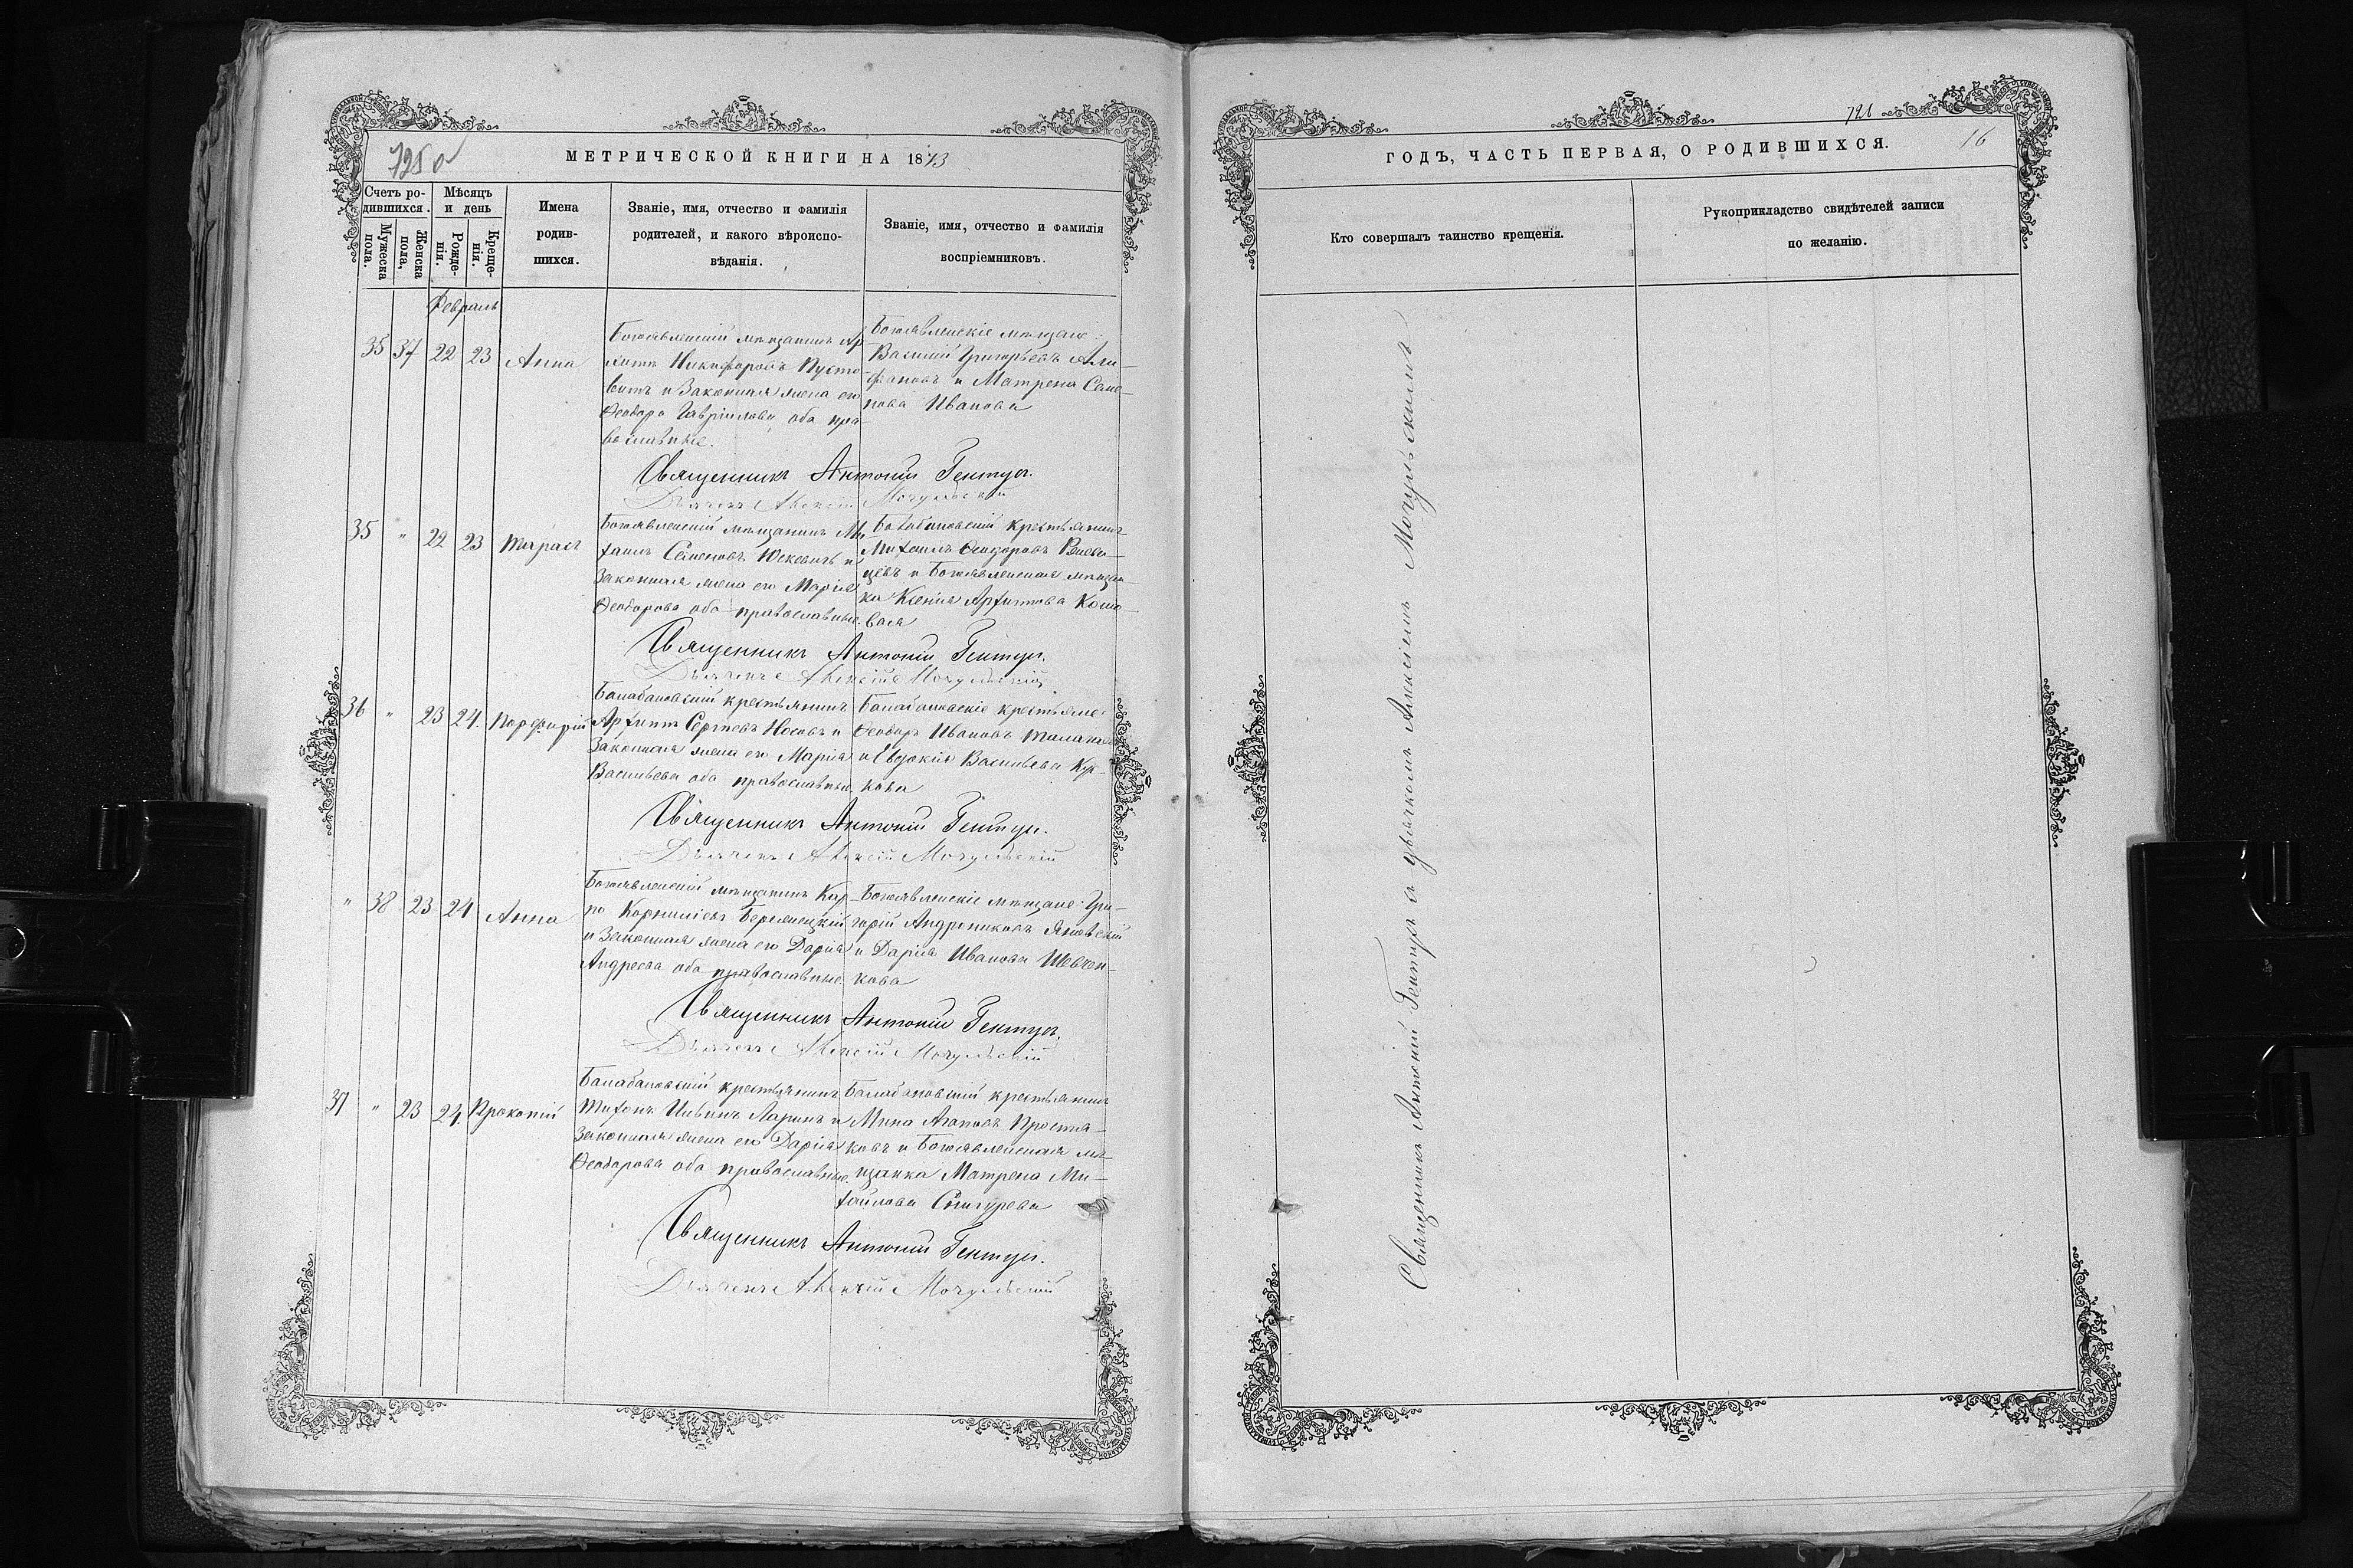 725 об
МЕТРИЧЕСКОЙ КНИГИ НА 1873
Счетъ ро-
дившихся.
Мужеска
пола.
Женска
пола,
Мѣсяцъ
и день
Рожде-
нія.
Креще-
нія.
Имена
родив-
шихся.
Званіе, имя, отчество и фамилія
родителей, и какого вѣроиспо-
вѣданія.
Званіе, имя, отчество и фамилія
воспріемниковъ.
Февраль
35 37 22 23 Анна
Богоявленскій мѣщанинъ Ар
Никифоровъ Пусто
витъ и Законная жена его
Феодора Гаврилова, оба пра-
вославные.
Богоявленскіе мѣщане:
Василій Григорьевъ Али-
фановъ и Матрена Семе-
нова Иванова
Священникъ Антоній Гентуръ.
Дьячекъ Алексій Мочульскій
35 " 22 23 Тарасъ
Богоявленскій мѣщанинъ Ми
хаилъ Семеновъ Юскевичъ и
Законная жена его Марія
Феодорова оба православные.
Балабановскій крестьянинъ
Михаилъ Феодоровъ
цевъ и Богоявленская мѣщан
ка Ксенія Архипова Коше
вая
Священникъ Антоній Гентуръ.
Дьячекъ Алексій Мочульскій
36 " 23 24. Порфирій
Балабановскій крестьянинъ
Архипъ Сергѣевъ Носовъ и
Законная жена его Марія
Васильева оба православные
Балабановскіе крестьяне:
Феодоръ Ивановъ
и Евдокія Васильева Кур-
кова
Священникъ Антоній Гентуръ.
Дьячекъ Алексій Мочульскій
" 38 23 24 Анна
Богоявленскій мѣщанинъ Кар
по Корниліевъ Бережецкій
и Законная жена его Дарія
Андреева оба православные.
Богоявленскіе мѣщане: Гри-
горій Андрониковъ Яновскій
и Дарія Иванова Шевчен-
кова
Священникъ Антоній Гентуръ.
Дьячекъ Алексій Мочульскій
37 " 23 24. Прокопій
Балабановскій крестьянинъ
Тихонъ Ильинъ Ларинъ и
Законная жена его Дарія
Феодорова оба православные.
Балабановскій крестьянинъ
Мина Агаповъ Простя-
ковъ и Богоявленская мѣ-
щанка Матрена Ми-
хайлова Снигурева
Священникъ Антоній Гентуръ.
Дьячекъ Алексій Мочульскій
726
16
ГОДЪ, ЧАСТЬ ПЕРВАЯ, О РОДИВШИХСЯ.
Кто совершалъ таинство крещенія.
Рукоприкладство свидѣтелей записи
по желанію.
Священникъ Антоній Гентуръ съ дьячкомъ Алексіемъ Мочульскимъ